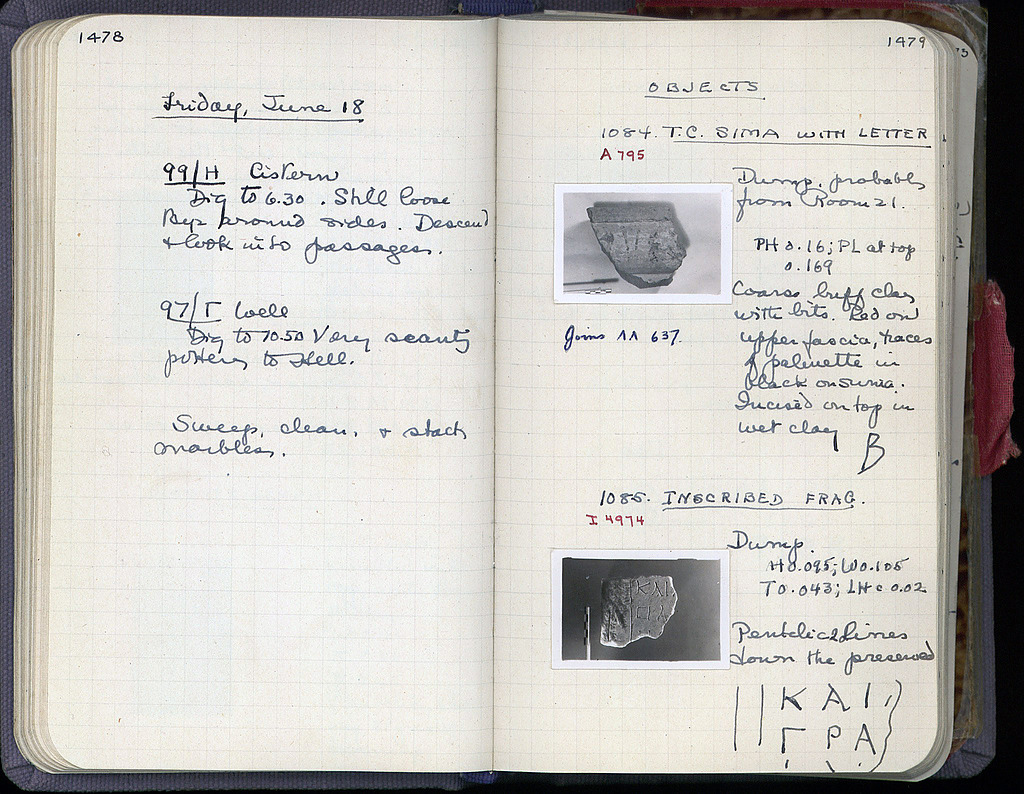 1478
Friday, June 18
99/H Cistern
Dig to 6.30. Still loose
around sides. Descend
+ look into passages.
97/Γ Well
Dig to 10.50 Very scanty
pottery to Hell.
Sweep, clean, + stack
marbles.
1479
OBJECTS
1084. T.C. SIMA WITH LETTER
A 795
Dump, probably
from Room 21.
PH 0.16; PL at top
0.169
Coarse buff clay
with bits. Red on
upper fascia, traces
of palmette in
black on sima.
Incised on top in
wet clay
B
Joins AA 637.
1085. INSCRIBED FRAG.
I 4974
Dump.
H 0.095; W 0.105
T 0.043; LH c 0.02
Pentelic 2 Lines
down the preserved
ΚΑΙ
ΓΡΑ